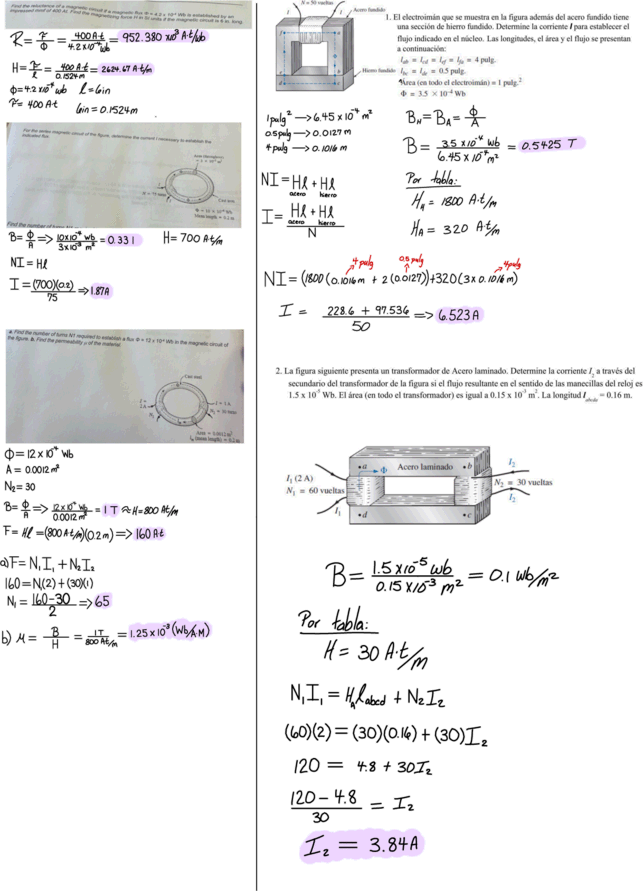 Find the reluctance of a magnetic circuit if a magnetic flux Φ = 4.2 x 10⁻⁴ Wb is established by an
impressed mmf of 400 At. Find the magnetizing force H in SI units if the magnetic circuit is 6 in. long.
R = F/Φ = 400A·t / 4.2x10⁻⁴ wb = 952.380 x10³ A·t/wb
H = F/l = 400A·t / 0.1524m = 2624.67 A·t/m
Φ=4.2x10⁻⁴ wb l=6in
F= 400A·t 6in=0.1524m
For the series magnetic circuit of the figure, determine the current I necessary to establish the
indicated flux.
Area (throughout)
= 3 × 10⁻³ m²
N = 75 turns
Cast iron
Φ = 10 × 10⁻⁴ Wb
Mean length = 0.2 m
Find the number of turns
B= Φ/A => 10x10⁻⁴ wb / 3x10⁻³ m² = 0.331 H=700 A·t/m
NI = Hl
I = (700)(0.2) / 75 => 1.87A
a. Find the number of turns N1 required to establish a flux Φ = 12 x 10⁻⁴ Wb in the magnetic circuit of
the figure. b. Find the permeability μ of the material.
Cast steel
I =
2 A
N₁
I = 1 A
N₂ = 30 turns
Area = 0.0012 m²
lₘ (mean length) = 0.2 m
Φ = 12 x 10⁻⁴ Wb
A = 0.0012 m²
N₂ = 30
B= Φ/A => 12x10⁻⁴ wb / 0.0012 m² = 1 T ≈ H=800 At/m
F= Hl = (800 At/m)(0.2m) => 160 A·t
a) F= N₁I₁ + N₂I₂
160=N₁(2) + (30)(1)
N₁ = 160-30 / 2 => 65
b) μ = B/H = 1T / 800 At/m = 1.25 x 10⁻³ (Wb/A·M)
N = 50 vueltas
I I
Acero fundido
Hierro fundido
f a
e b
d c
1. El electroimán que se muestra en la figura además del acero fundido tiene
una sección de hierro fundido. Determine la corriente I para establecer el
flujo indicado en el núcleo. Las longitudes, el área y el flujo se presentan
a continuación:
lab = lcd = lef = lfa = 4 pulg.
lbc = lde = 0.5 pulg.
Área (en todo el electroimán) = 1 pulg.²
Φ = 3.5 × 10⁻⁴ Wb
1 pulg² → 6.45 x 10⁻⁴ m²
0.5 pulg → 0.0127 m
4 pulg → 0.1016 m
B_H = B_A = Φ/A
B = 3.5 x10⁻⁴ Wb / 6.45 x10⁻⁴ m² = 0.5425 T
NI = Hl + Hl
acero hierro
I = Hl + Hl / N
acero hierro
Por tabla:
H_A = 1800 A·t/m
H_A = 320 A·t/m
4 pulg 0.5 pulg 4pulg
NI = (1800(0.1016m + 2(0.0127))+320(3x0.1016m)
I = 228.6 + 97.536 / 50 => 6.523A
2. La figura siguiente presenta un transformador de Acero laminado. Determine la corriente I₂ a través del
secundario del transformador de la figura si el flujo resultante en el sentido de las manecillas del reloj es
1.5 x 10⁻⁵ Wb. El área (en todo el transformador) es igual a 0.15 x 10⁻³ m². La longitud l abcda = 0.16 m.
I₁ (2 A)
N₁ = 60 vueltas
I₁
a Φ Acero laminado b
d c
I₂
N₂ = 30 vueltas
I₂
B = 1.5x10⁻⁵ wb / 0.15 x10⁻³ m² = 0.1 wb/m²
Por tabla:
H = 30 A·t/m
N₁I₁ = H_A l abcd + N₂I₂
(60)(2) = (30)(0.16) + (30)I₂
120 = 4.8 + 30I₂
120 - 4.8 / 30 = I₂
I₂ = 3.84A